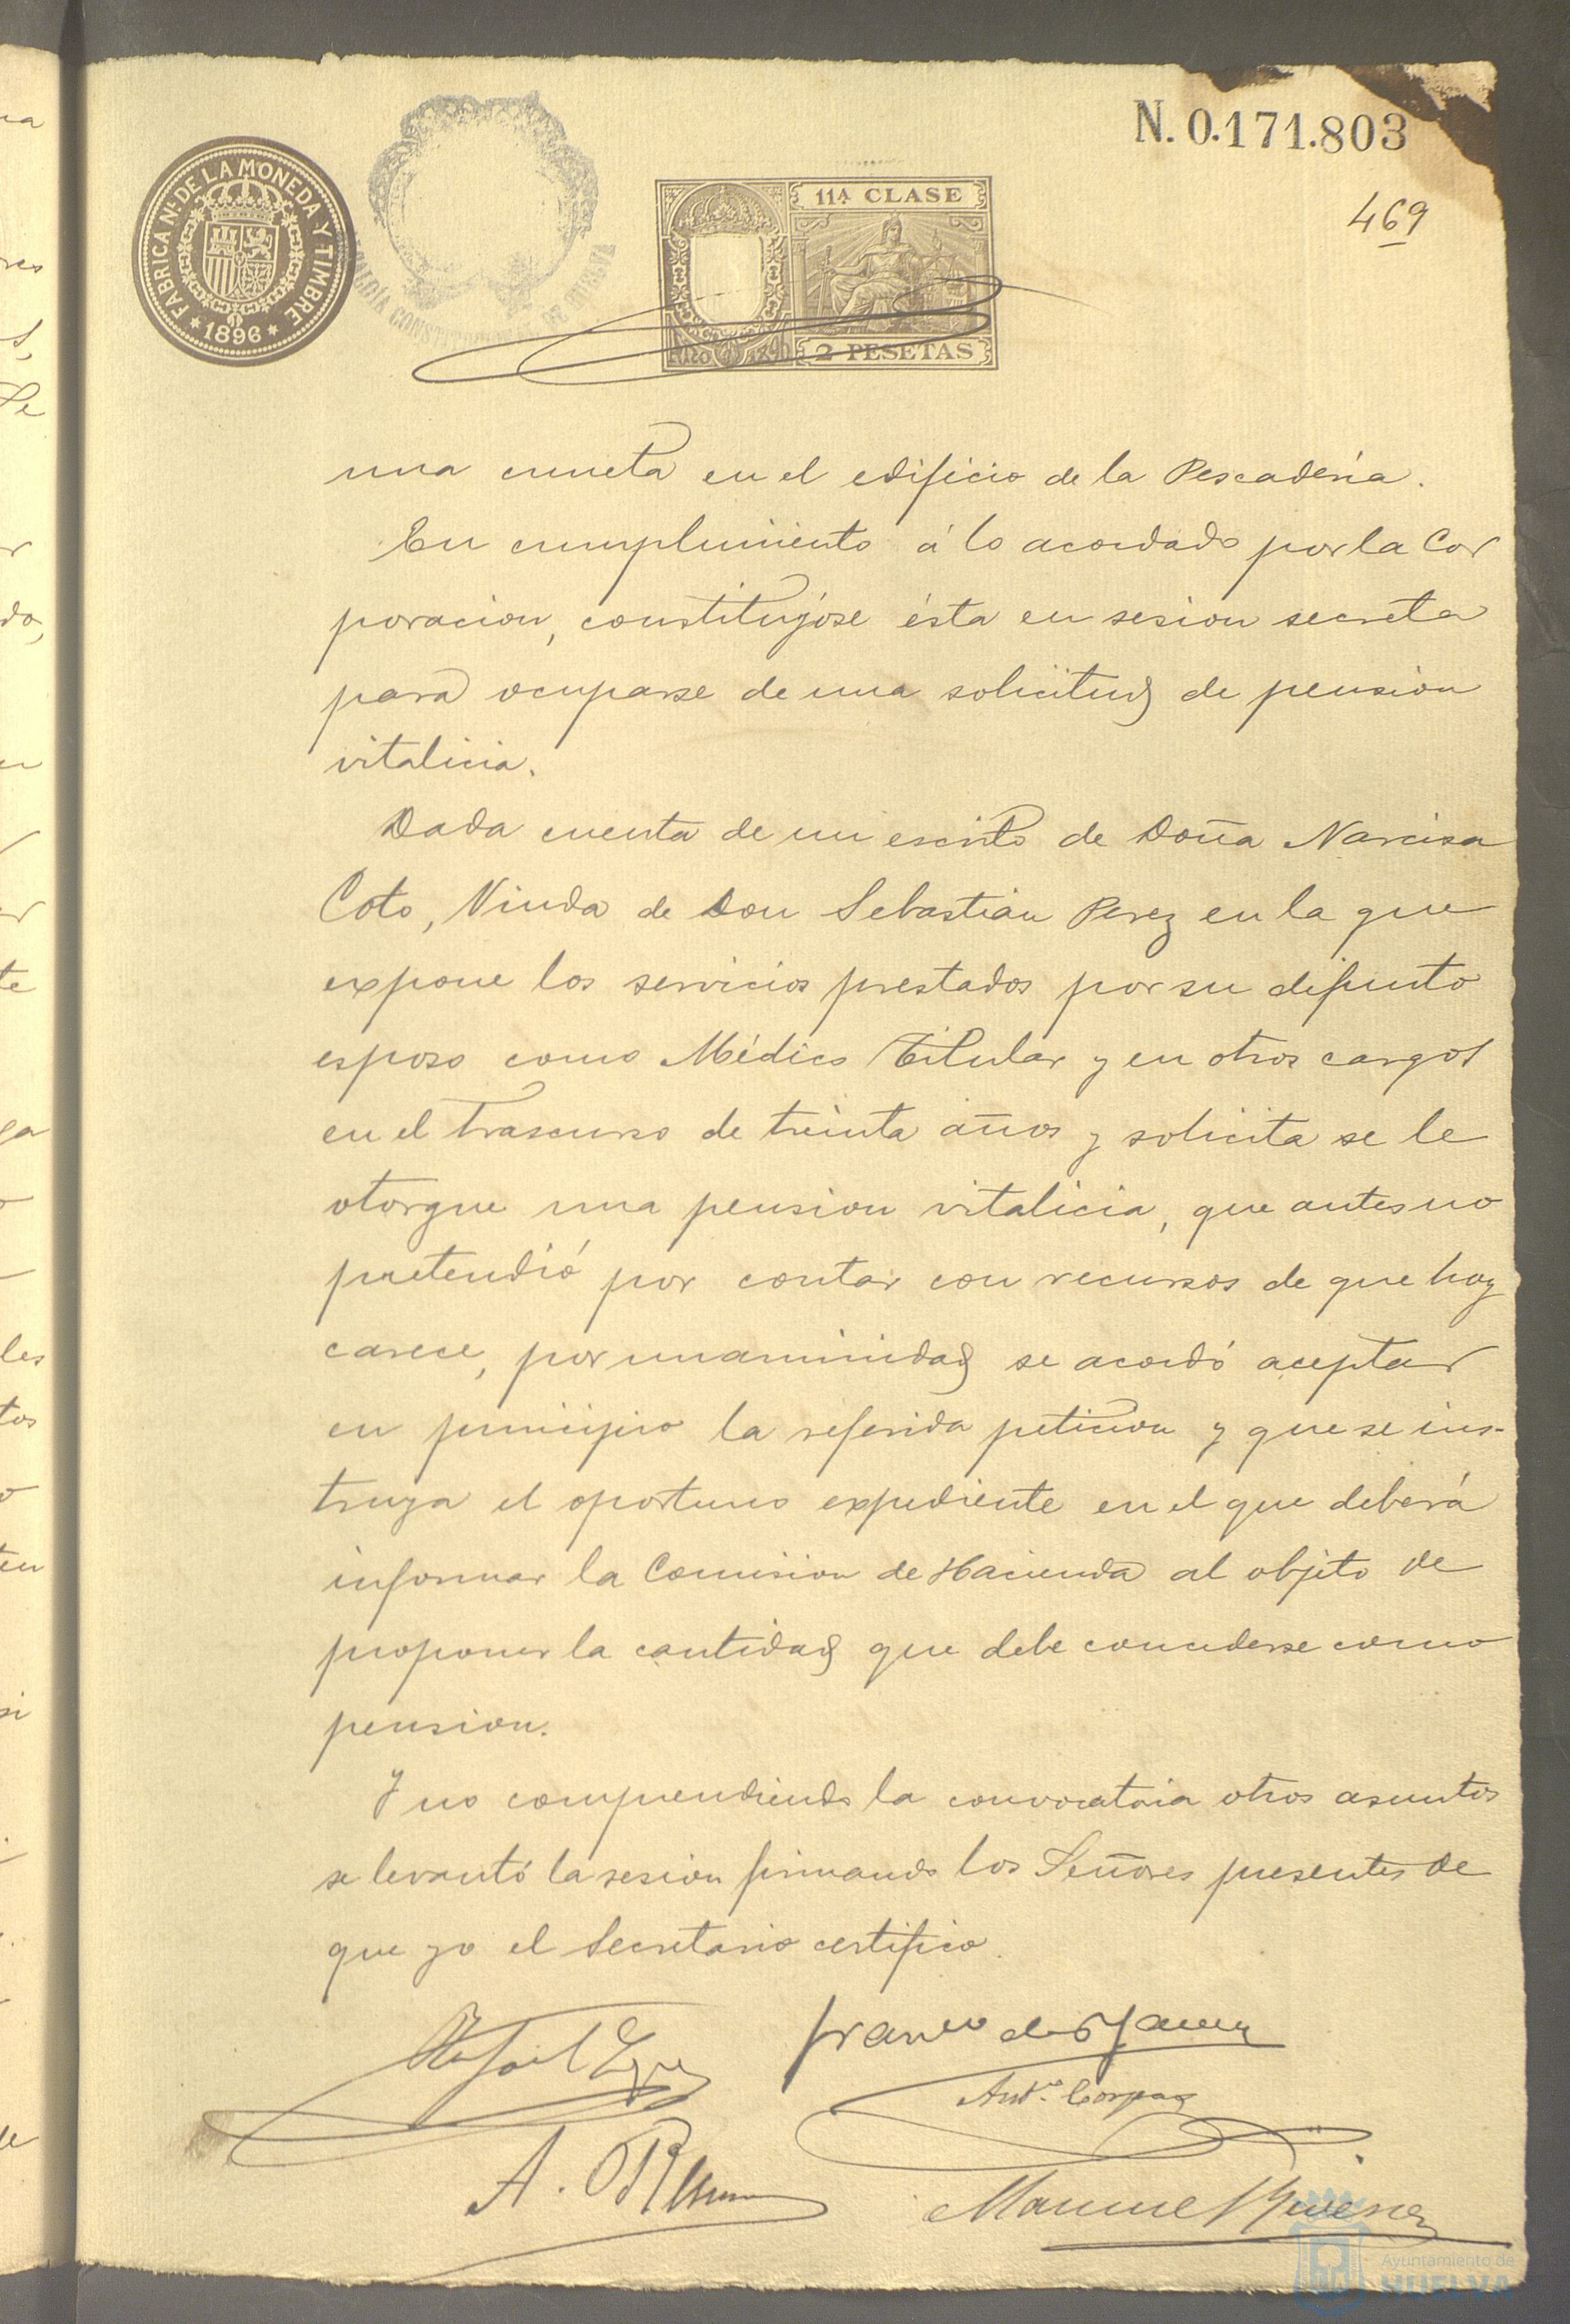 N. 0.171.803
469
FABRICA NL. DE LA MONEDA Y TIMBRE
* 1896 *
11ª CLASE
2 PESETAS
una cuneta en el edificio de la Pescadería.
En cumplimiento á lo acordado por la Cor
poracion, constituyóse ésta en sesion secreta
para ocuparse de una solicitud de pension
vitalicia.
Dada cuenta de un escrito de Doña Narcisa
Coto, Viuda de Don Sebastián Perez en la que
expone los servicios prestados por su difunto
esposo como Médico Titular y en otros cargos
en el trascurso de treinta años y solicita se le
otorgue una pension vitalicia, que antes no
pretendió por contar con recursos de que hoy
carece, por unaminidad se acordó aceptar
en principio la referida peticion y que se ins-
truya el oportuno expediente en el que deberá
informar la Comision de Hacienda al objeto de
proponer la cantidad que debe concederse como
pension.
Y no comprendiendo la convocatoria otros asuntos
se levantó la sesion firmando los Señores presentes de
que yo el Secretario certifico.
Rafael
Antº. Corpas
A.
Manuel
Ayuntamiento de
HUELVA